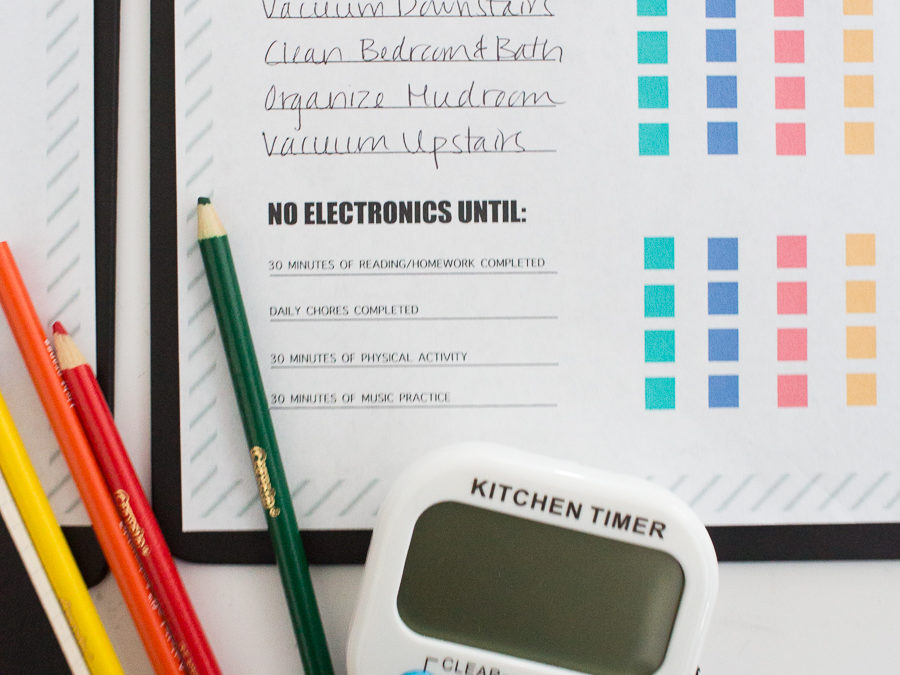 Vacuum Downstairs
Clean Bedroom & Bath
Organize Mudroom
Vacuum Upstairs
NO ELECTRONICS UNTIL:
30 MINUTES OF READING/HOMEWORK COMPLETED
DAILY CHORES COMPLETED
30 MINUTES OF PHYSICAL ACTIVITY
30 MINUTES OF MUSIC PRACTICE
Crayola
Crayola
KITCHEN TIMER
CLEAR